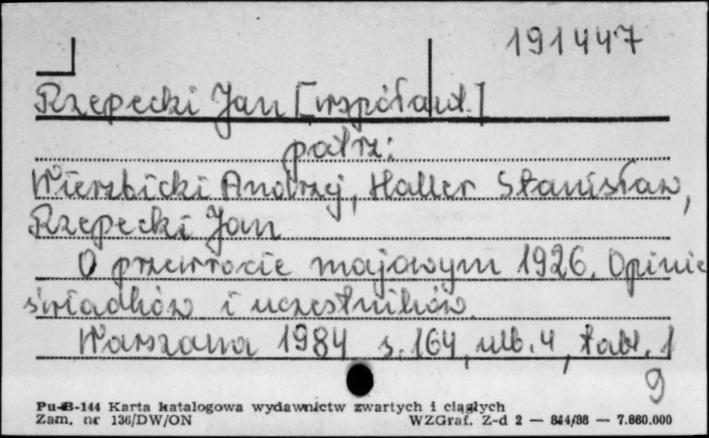 191447
Rzepecki Jan [współaut.]
patrz:
Wierzbicki Andrzej, Haller Stanisław,
Rzepecki Jan
O przewrocie majowym 1926. Opinie
świadków i uczestników.
Warszawa 1984 s. 164, nlb. 4, tabl. 1
9
Pu-B-144 Karta katalogowa wydawnictw zwartych i ciągłych
Zam. nr 136/DW/ON WZGraf. Z-d 2 — 844/88 — 7.860.000